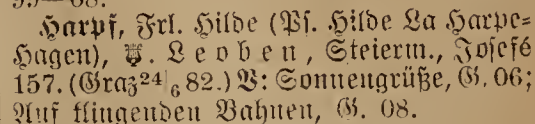 Harpf, Frl. Hilde (Ps. Hilde La Harpe=
Hagen), Leoben, Steierm., Josefé
157. (Graz 24|6 82.) V: Sonnengrüße, G. 06;
Auf klingenden Bahnen, G. 08.